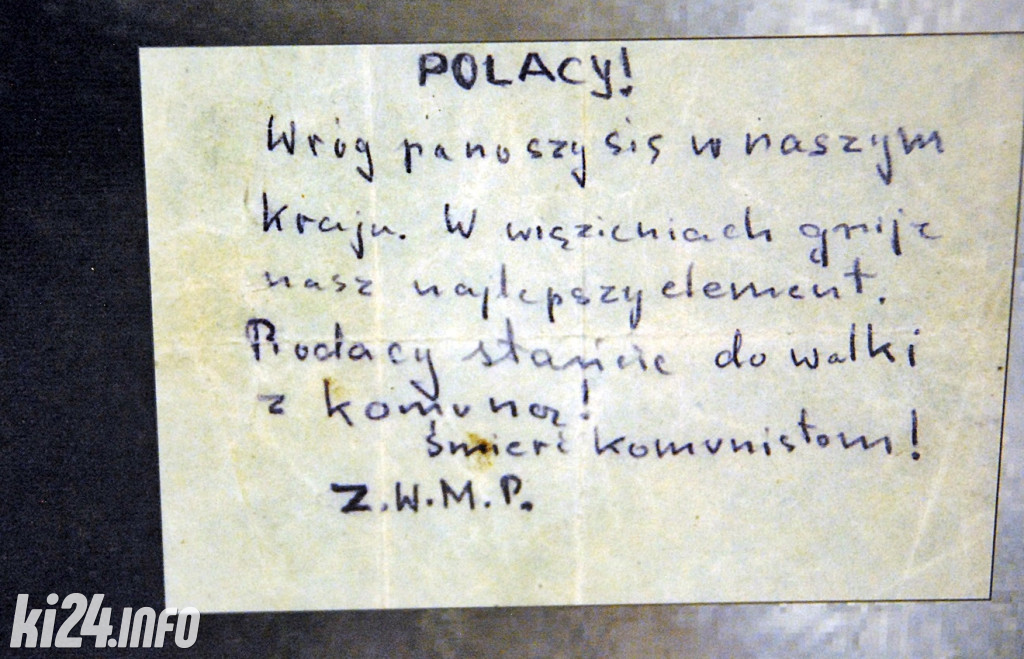 POLACY!
Wróg panoszy się w naszym
kraju. W więzieniach gnije
nasz najlepszy element.
Rodacy stańcie do walki
z komuną!
śmierć komunistom!
Z.W.M.P.
ki24.info